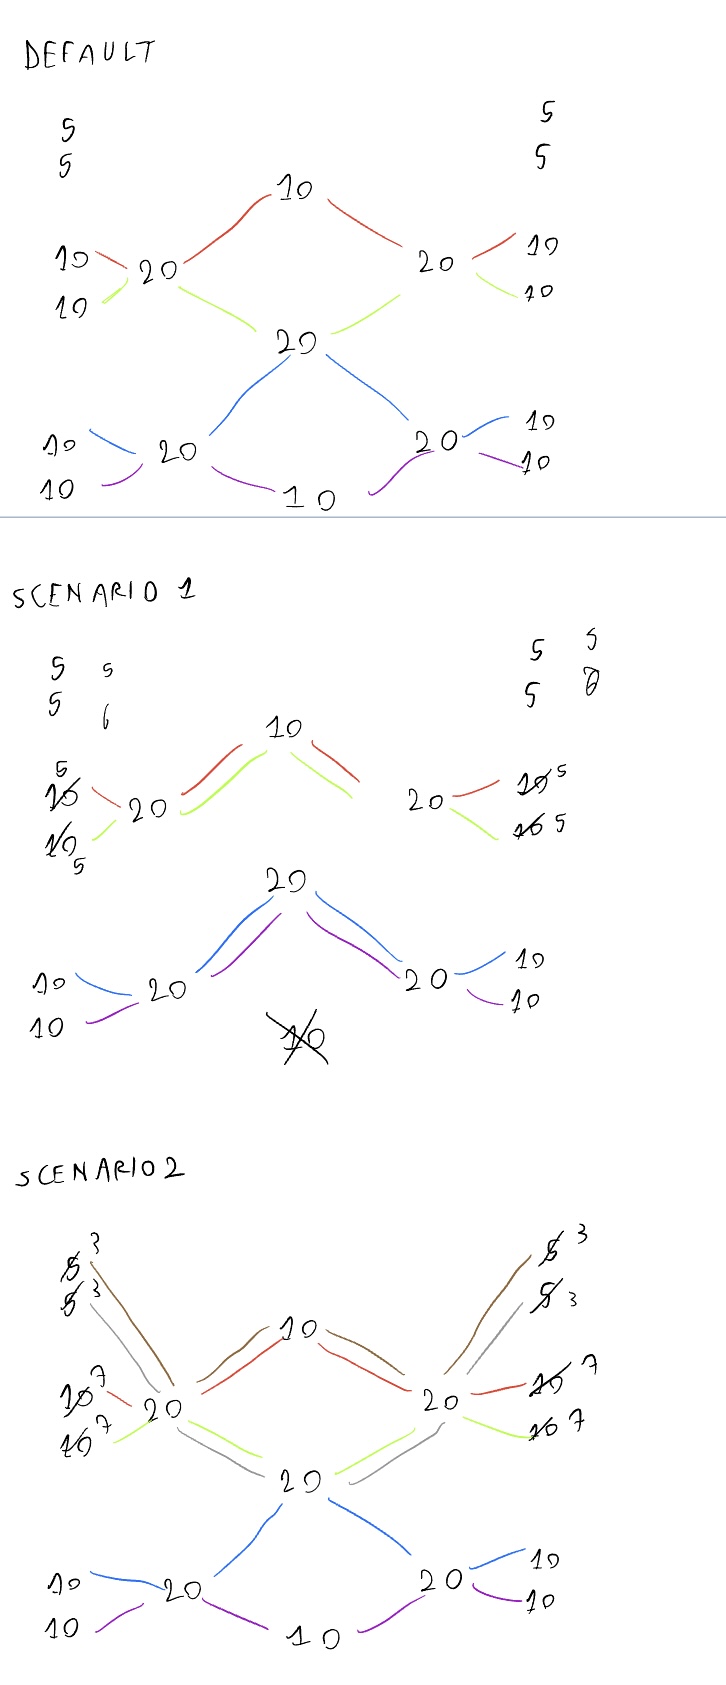 DEFAULT
5 5
5 5
10
10 20 20 10
10 10
20
10 20 20 10
10 10 10
SCENARIO 1
5 5 5 5
5 6 5
10
5
10 20 20 10 5
10 10 5
5
20
10 20 20 10
10 10
10
SCENARIO 2
5 3 5 3
5 3 5 3
10
10 7 20 20 10 7
10 7 10 7
20
10 20 20 10
10 10 10